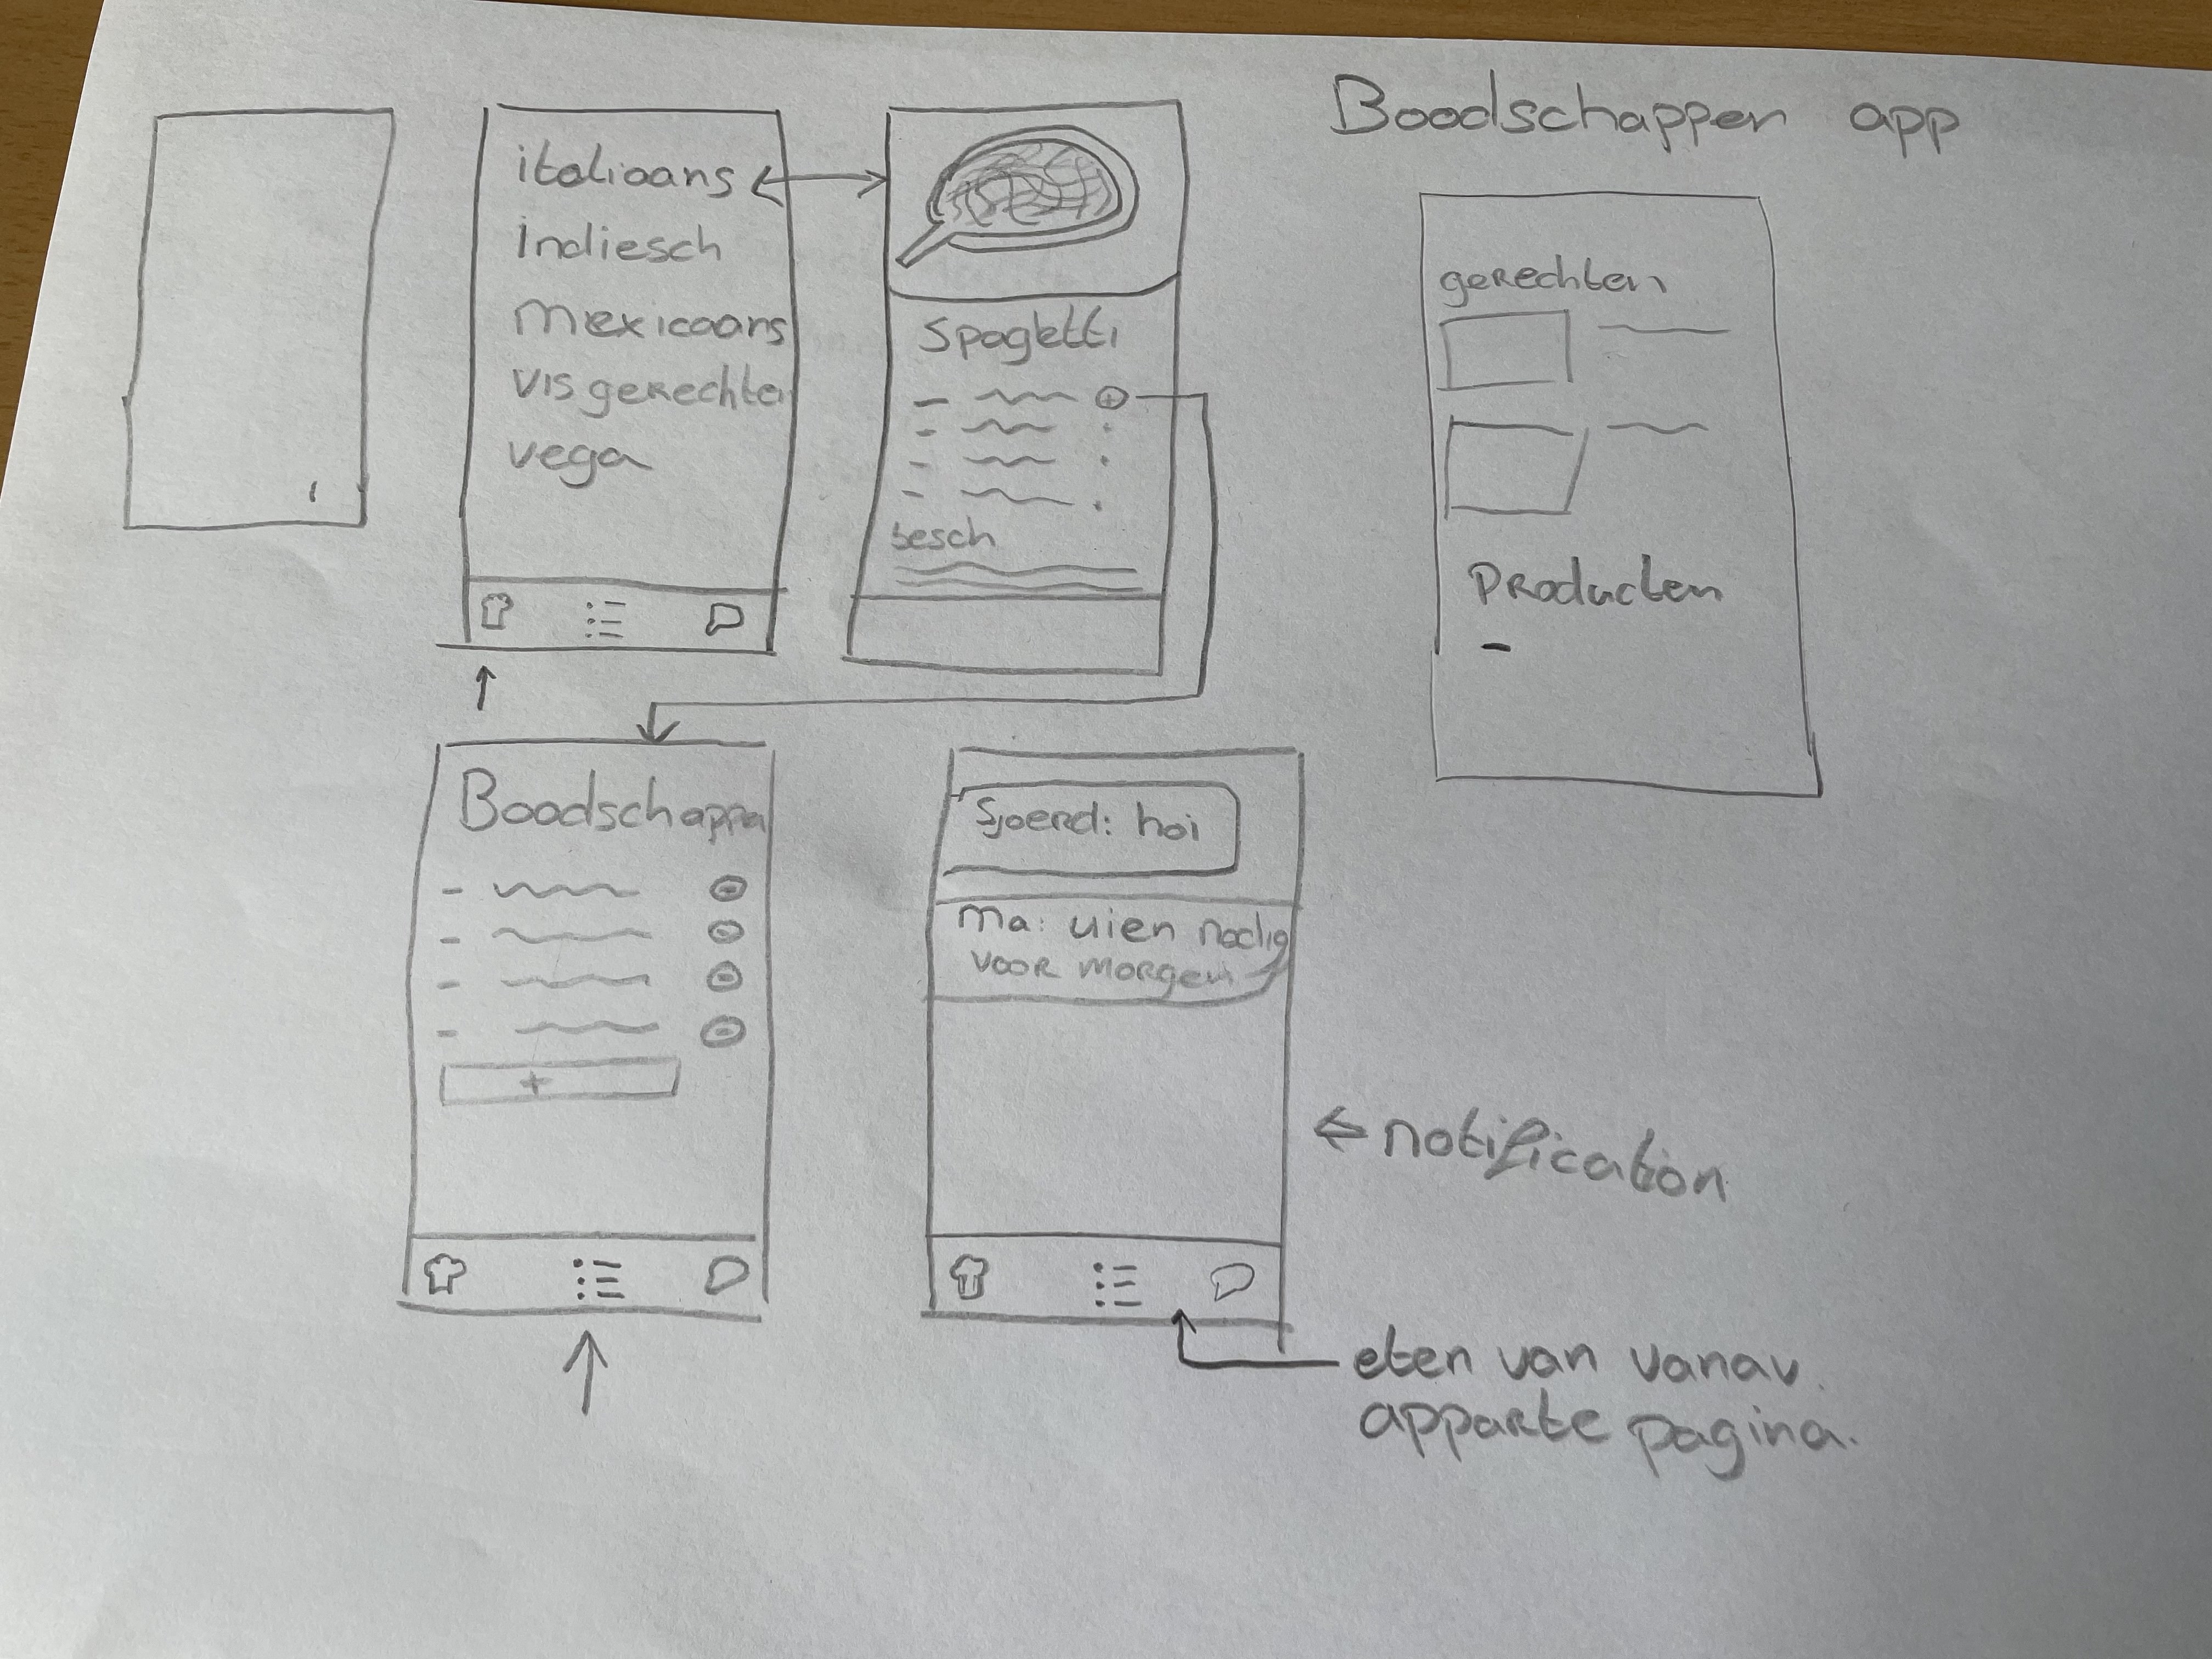 Boodschappen app
italiaans
indiesch
mexicaans
vis gerechten
vega
Spagetti
besch
gerechten
Producten
Boodschappen
Sjoerd: hoi
Ma: uien nodig
voor morgen
notification
eten van vanav.
apparte pagina.